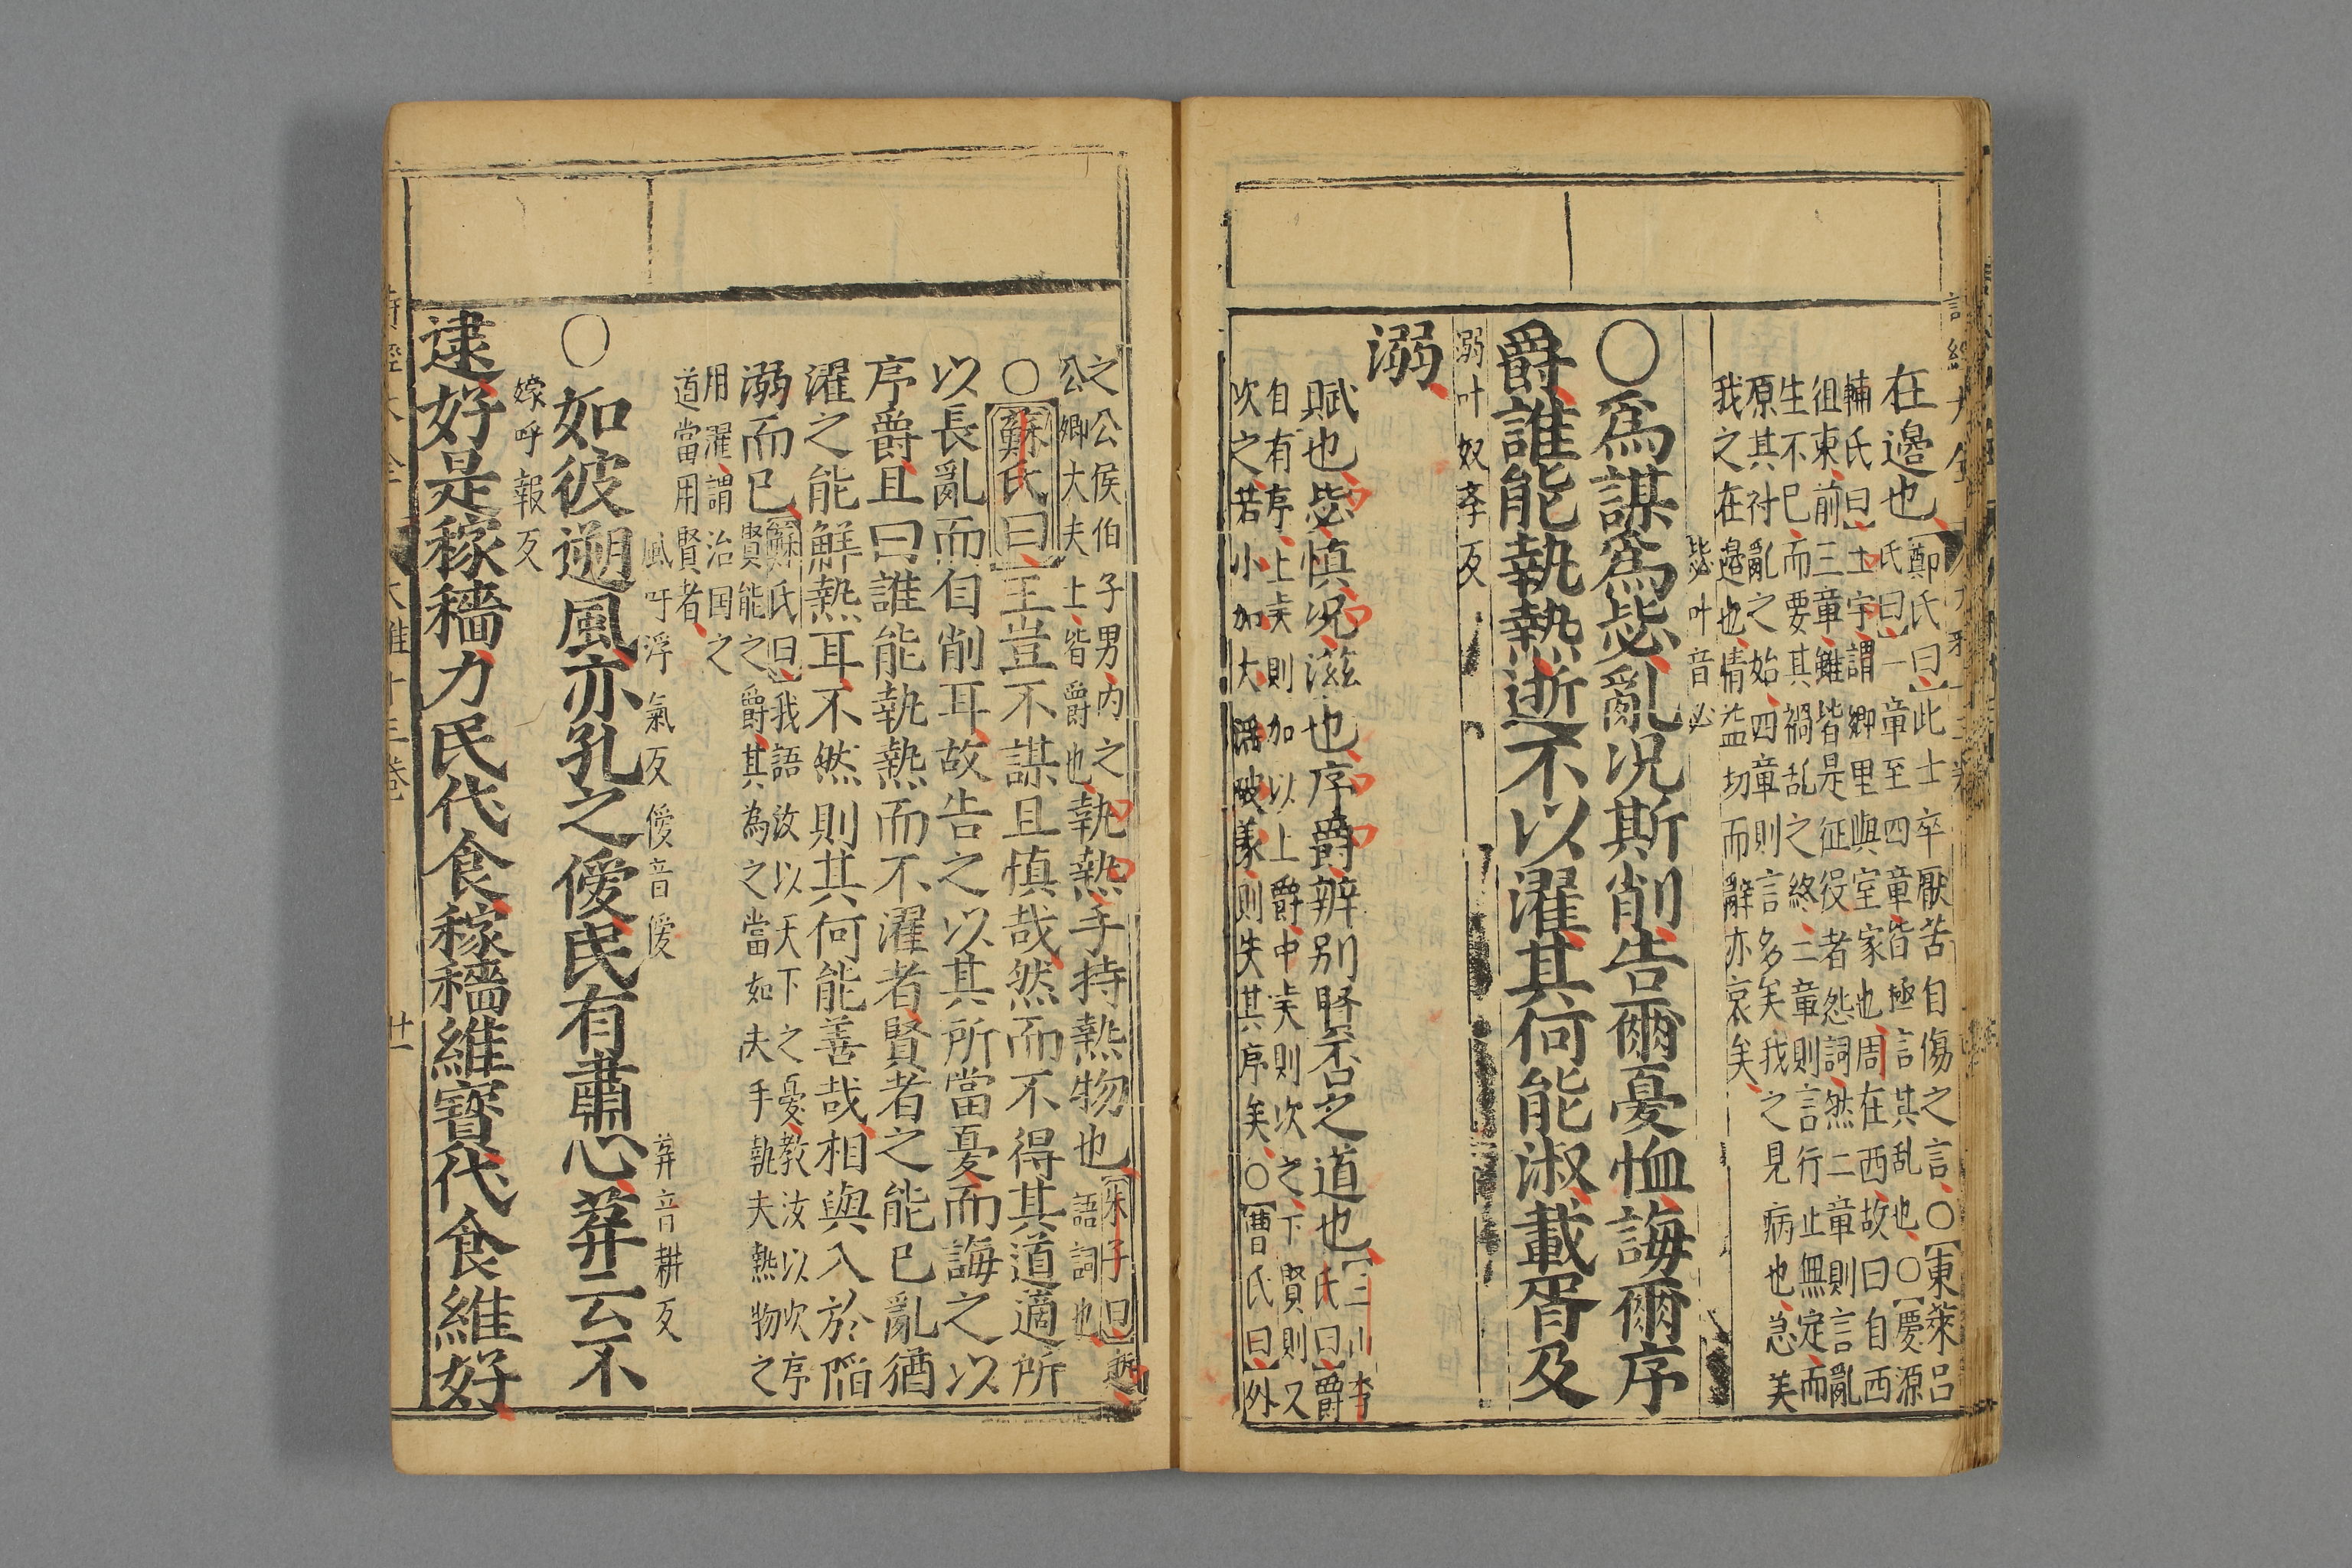 在邊也【鄭氏曰】此士卒厭苦自傷之言○【東萊呂
氏曰】一章至四章皆極言其乱也○【慶源
輔氏曰】土宇謂鄉里與室家也周在西故曰自西
徂東前三章雖皆是征役者怨詞然二章則言亂
生不已而要其禍乱之終三章則言行止無定而
原其衬亂之始四章則言多矣我之見病也急矣
我之在邉也情益切而辭亦哀矣
毖叶音必
○爲謀爲毖亂况斯削告爾憂恤誨爾序
爵誰能執熱逝不以濯其何能淑載胥及
溺叶奴孝反
溺
賦也毖慎况滋也序爵辨别賢否之道也【三山李
氏曰】爵
自有序上矣則加以上爵中矣則次之下賢則又
次之若小加大滛破義則失其序矣○【曹氏曰】外
之公侯伯子男内之
公卿大夫士皆爵也執熱手持熱物也【朱子曰】逝
語詞也
○【蘇氏曰】王豈不謀且慎哉然而不得其道適所
以長亂而自削耳故告之以其所當憂而誨之以
序爵且曰誰能執熱而不濯者賢者之能已亂猶
濯之能解熱耳不然則其何能善哉相與入於陷
溺而已【蘇氏曰】我語汝以天下之憂教汝以次序
賢能之爵其為之當如夫手執夫熱物之
用濯謂治国之
道當用賢者
風吁浮氣反僾音僾荓音耕反
○如彼遡風亦孔之僾民有肅心荓云不
嫁呼報反
逮好是稼穡力民代食稼穡維寳代食維好
詩經大全 大雅十三卷 廿一